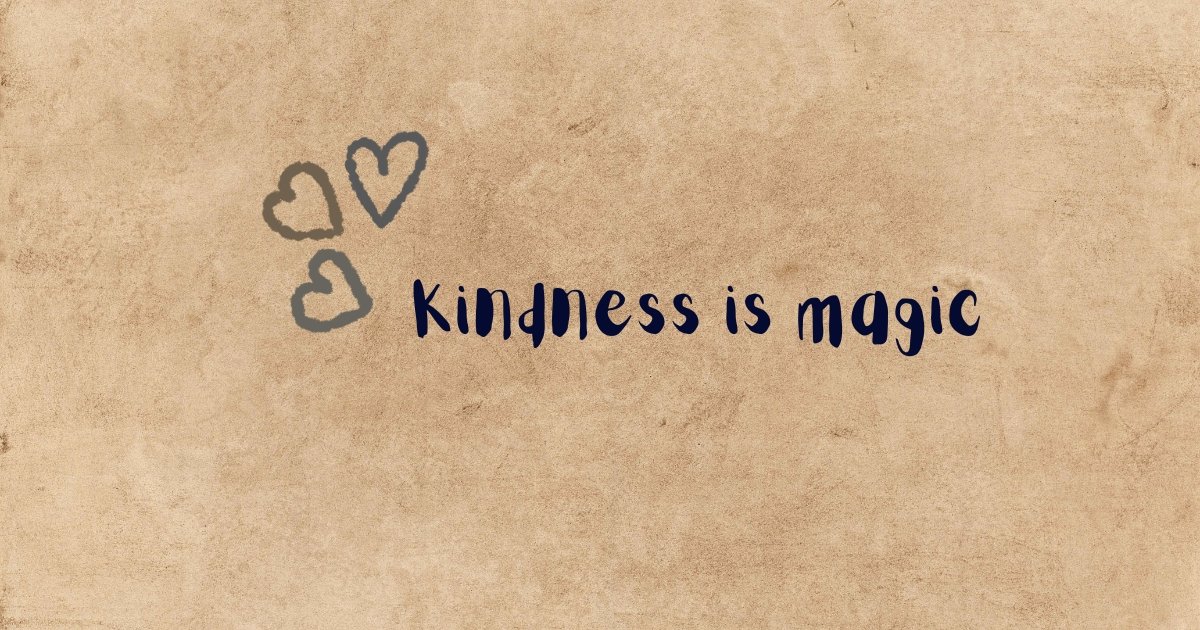 Kindness is magic